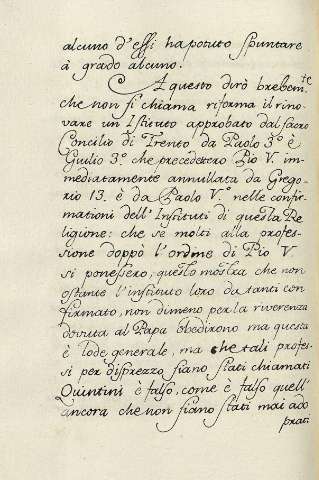 alcuno d'essi ha potuto spuntare
à grado alcuno.
A questo dirò brebem.te
che non si chiama riforma il rino-
vare un Istituto approbato dal sacro
Concilio di Trento da Paolo 3.º è
Giulio 3.º che precedettero Pio V. im-
mediatamente annullata da Grego-
rio 13. è da Paolo V.º nelle confir-
mationi dell'Instituti di questa Re-
ligione: che se molti alla profes-
sione doppò l'ordine di Pio V.
si ponessero, questo mostra che non
ostante l'instituto loro da tanti con-
firmato, non dimeno per la riverenza
dovuta al Papa obedirono ma questa
è lode generale, ma che tali profes-
si per disprezzo siano stati chiamati
Quintini è falso, come è falso quell'
àncora che non siano stati mai ado
prati